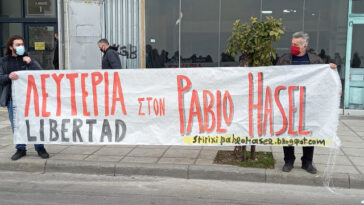 ΛΕΥΤΕΡΙΑ ΣΤΟΝ PABLO HASEL
LIBERTAD
stirixipablohasel.blogspot.com